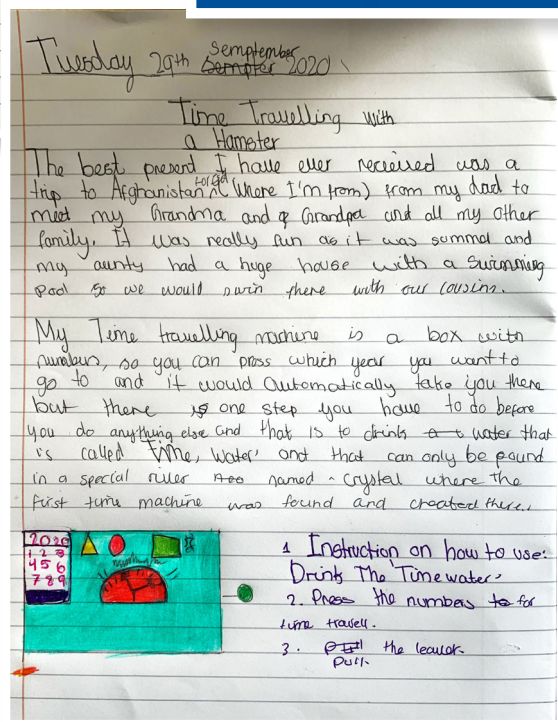 Semptember
Tuesday 29th Sempter 2020
Time Travelling with
a Hamster
The best present I have ever recieved was a
trip to Afghanistan for Eid (Where I'm from) from my dad to
meet my Grandma and Grandpa and all my other
family. It was really fun as it was summar and
my aunty had a huge house with a Swimming
Pool so we would swim there with our cousins.
My Time travelling machine is a box with
numbers, so you can press which year you want to
go to and it would Automatically take you there
but there is one step you have to do before
you do anything else and that is to drink water that
is called 'Time, Water' and that can only be found
in a special river named Crystal where the
first time machine was found and created there.
2020
1 2 3
4 5 6
7 8 9
1 Instruction on how to use:
Drink The 'Time water,
2. Press the numbers to for
time travell.
3. Pull the leavar.
Pull